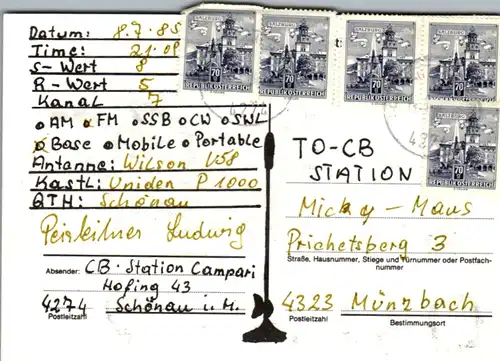 Datum: 8.7.85
Time: 21.08
S-Wert 8
R-Wert 5
Kanal 7
o AM ø FM o SSB o CW o SWL
ø Base o Mobile o Portable
Antanne: Wilson V58
Kastl: Uniden P 1000
QTH: Schönau
Peisleitner Ludwig
Absender: CB-Station Campari
Hofing 43
4274 Schönau i. M.
Postleitzahl
SALZBURG
70
REPUBLIK ÖSTERREICH
SALZBURG
70
REPUBLIK ÖSTERREICH
70
REPUBLIK ÖSTERREICH
70
REPUBLIK ÖSTERREICH
70
REPUBLIK ÖSTERREICH
4274
TO-CB
STATION
Micky-Maus
Prichetsberg 3
Straße, Hausnummer, Stiege und Türnummer oder Postfach-
nummer
4323 Münzbach
Postleitzahl Bestimmungsort